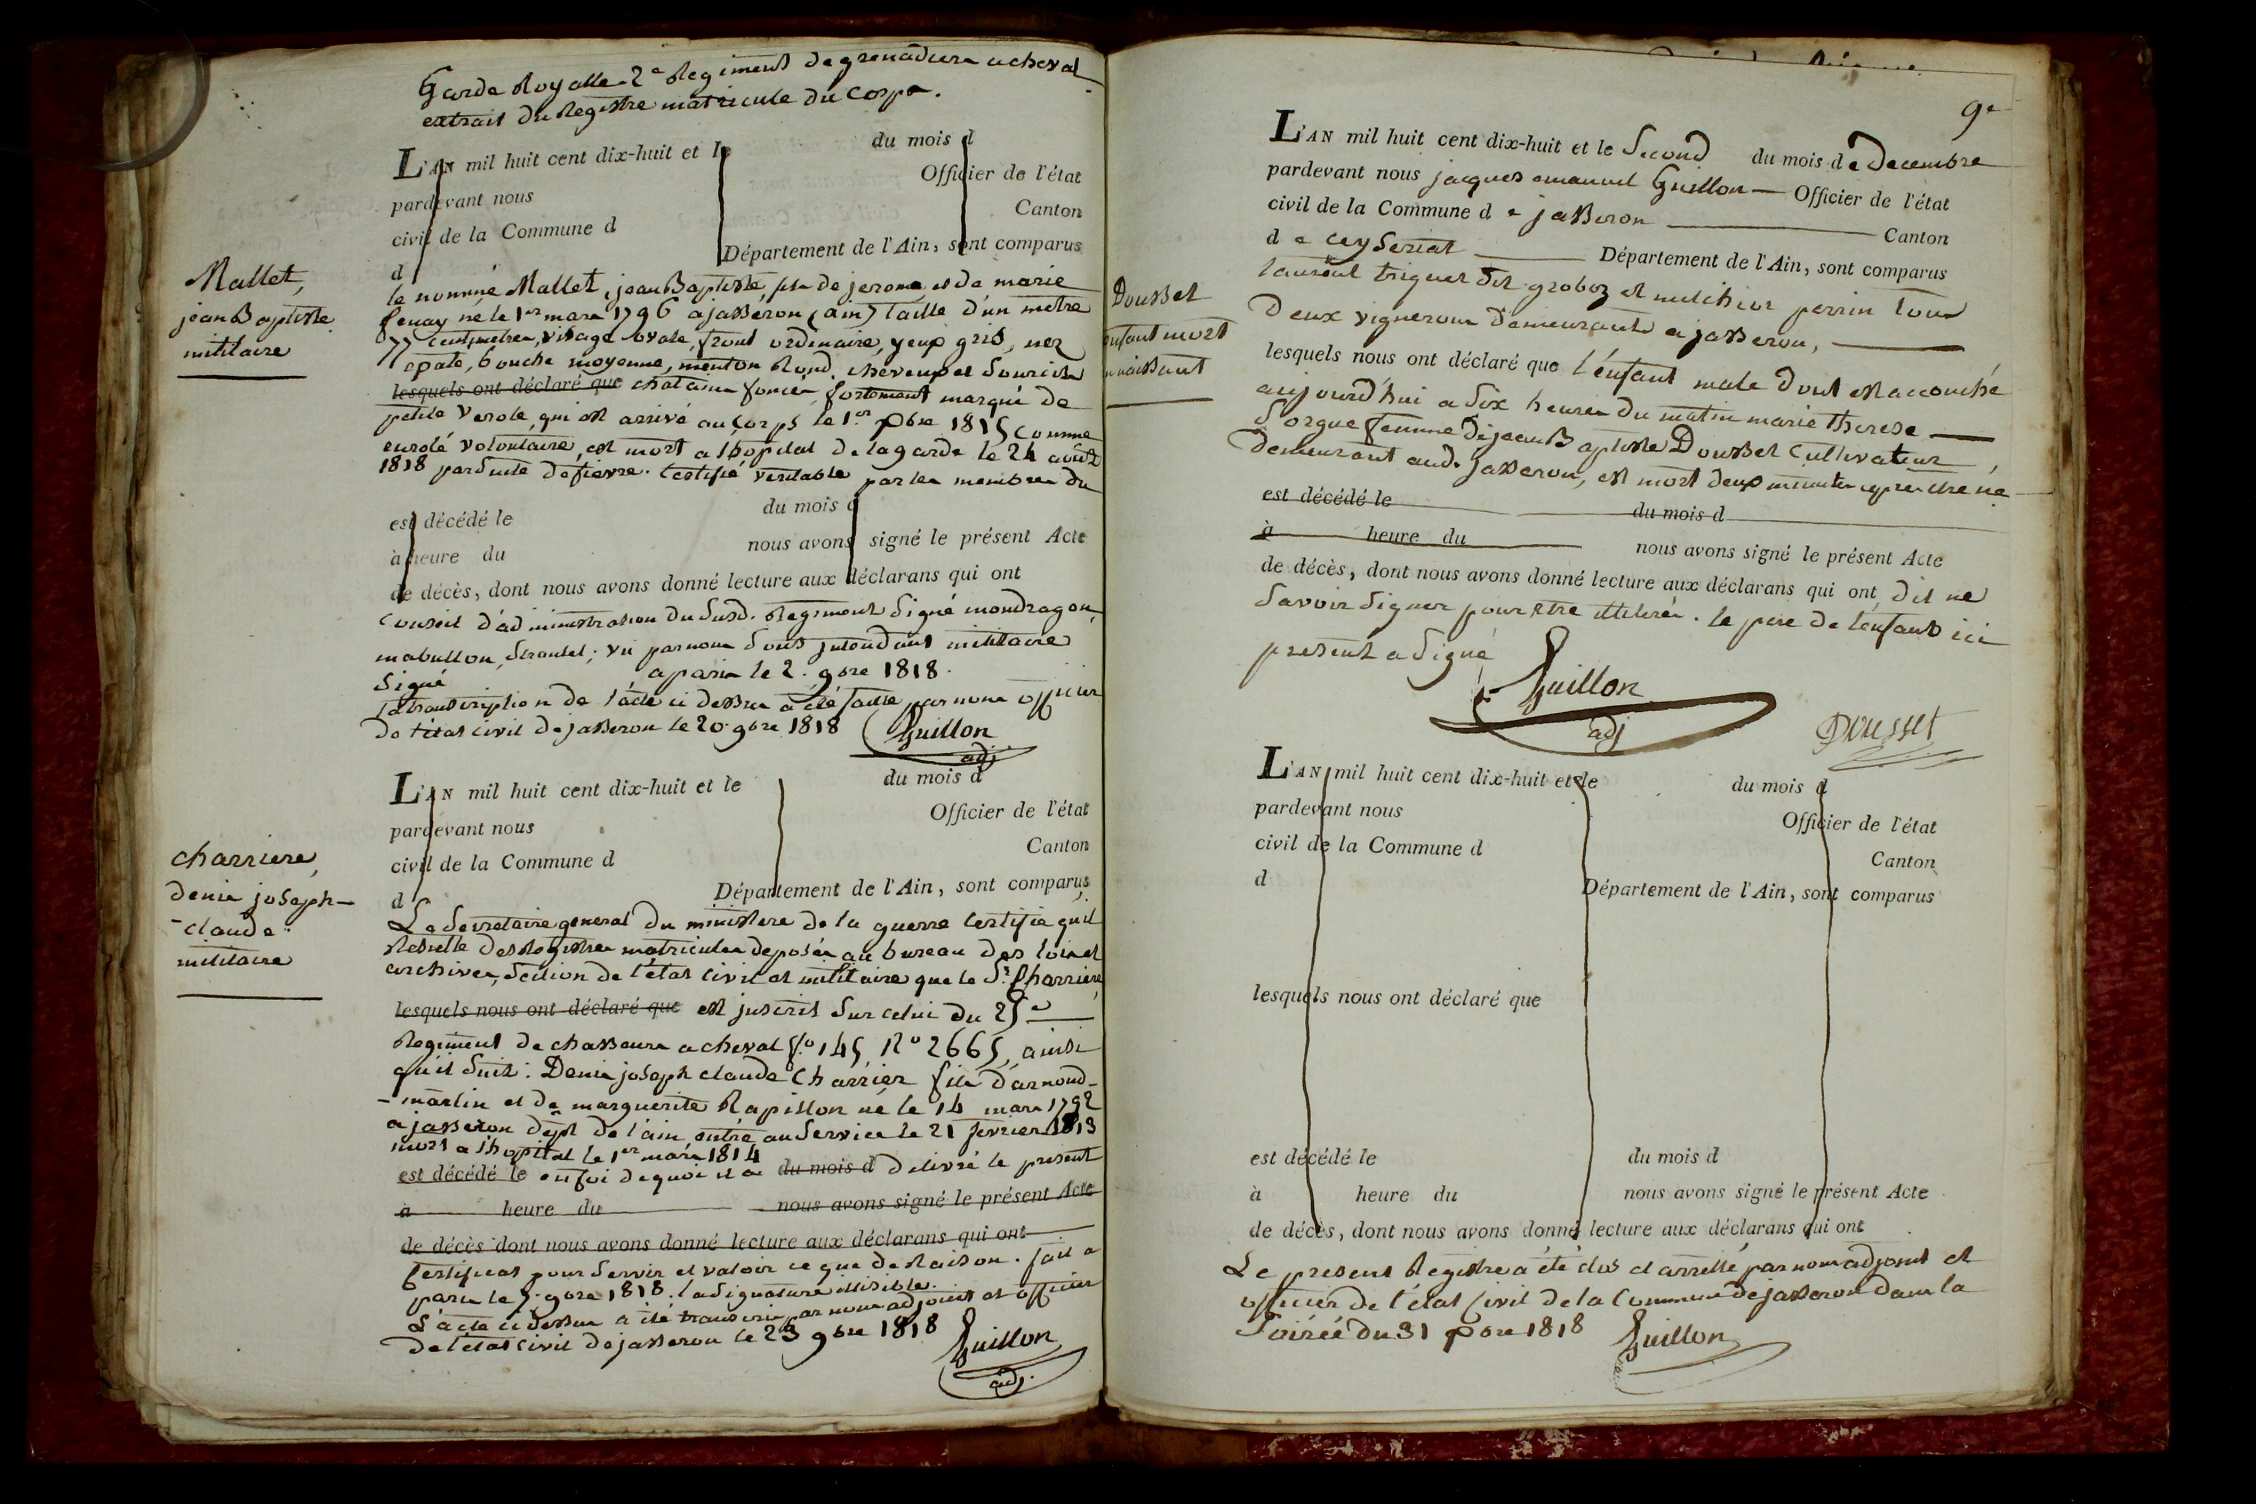 Garde Royalle 2e Regiment de grenadiers a cheval
extrait du Registre matricule du Corps.
L'AN mil huit cent dix-huit et le du mois d
pardevant nous Officier de l'état
civil de la Commune d Canton
d Département de l'Ain, sont comparus
Mallet,
jean Baptiste
militaire
le nommé Mallet, jean Baptiste fils de jerome et de marie
fenay né le 1er mars 1796 a jasseron (ain) taille d'un metre
77 centimetres, visage ovale, front ordinaire, yeux gris, nez
epaté, bouche moyenne, menton Rond, cheveux et Sourcils
lesquels ont déclaré que chatains foncés, fortement marqué de
petite verole, qui est arrivé au Corps le 1er Xbre 1815 comme
enrolé volontaire, est mort a lhopital de la garde le 24 août
1818 par Suite de fievre. Certifié veritable par les membres du
est décédé le du mois d
à heure du nous avons signé le présent Acte
de décès, dont nous avons donné lecture aux déclarans qui ont
Conseil d'administration du Susd. Regiment Signé mondragon,
mabullon, ; vu par nous Sous jntendant militaire
Signé a paris le 2. 9bre 1818.
la transcription de l'acte ci dessus a été faitte par nous officier
de l'état civil de jasseron le 20 9bre 1818 Guillon
adj.
L'AN mil huit cent dix-huit et le du mois d
pardevant nous Officier de l'état
civil de la Commune d Canton
d Département de l'Ain, sont comparus
charriere,
denis joseph-
-claude
militaire
Le Secretaire general du ministere de la guerre Certifie qu'il
Resulte des Registres matricules deposés au bureau des loix et
archives, Section de l'état Civil et militaire que le Sr. Charriere,
lesquels nous ont déclaré que est jnscrit Sur celui du 25e
Regiment de chasseurs a cheval fo. 145 No 2665, ainsi
qu'il Suit: Denis joseph claude Charrier fils d'arnoud-
-martin et de marguerite Rapillon né le 14 mars 1792
a jasseron dept de l'ain, entré au Service le 21 fevrier 1813
mort a lhopital le 1er mars 1814
est décédé le en foi de quoi il a du mois d delivré le present
à heure du nous avons signé le présent Acte
de décès dont nous avons donné lecture aux déclarans qui ont
Certificat pour Servir et valoir ce que de Raison. fait a
paris le 7. 9bre 1818. la Signature illisible.
L'acte ci dessus a été transcris par nous adjoint et officier
de l'état civil de jasseron le 23 9bre 1818 Guillon
adj.
9e
L'AN mil huit cent dix-huit et le Second du mois de Decembre
pardevant nous jacques emanuel Guillon Officier de l'état
civil de la Commune de jasseron Canton
de ceyseriat Département de l'Ain, sont comparus
Dousset
enfant mort
naissant
laurent triquet dit groboz et melchior perrin tous
Deux vignerons demeurants a jasseron,
lesquels nous ont déclaré que l'enfant male dont est accouché
aujourd'hui a Six heures du matin marie therese
Sorgue femme de jean Baptiste Dousset Cultivateur,
demeurant aud. jasseron, est mort deux minutes apres etre né
est décédé le du mois d
à heure du nous avons signé le présent Acte
de décès, dont nous avons donné lecture aux déclarans qui ont dit ne
Savoir Signer pour etre illiterés. le pere de l'enfant ici
present a Signé
Guillon
adj
Dousset
L'AN mil huit cent dix-huit et le du mois d
pardevant nous Officier de l'état
civil de la Commune d Canton
d Département de l'Ain, sont comparus
lesquels nous ont déclaré que
est décédé le du mois d
à heure du nous avons signé le présent Acte
de décès, dont nous avons donné lecture aux déclarans qui ont
Le present Registre a été clos et arretté par nous adjoint et
officier de l'état Civil de la Commune de jasseron dans la
Soirée du 31 Xbre 1818 Guillon